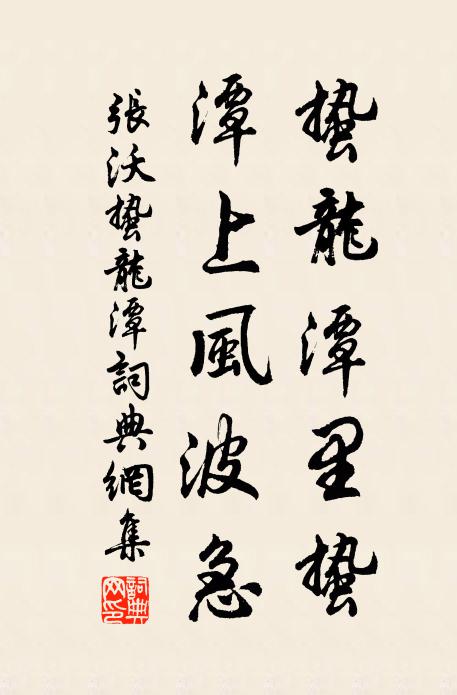 蟄龍潭里蟄
潭上風波急
張沃蟄龍潭詞典網集
詞典网印